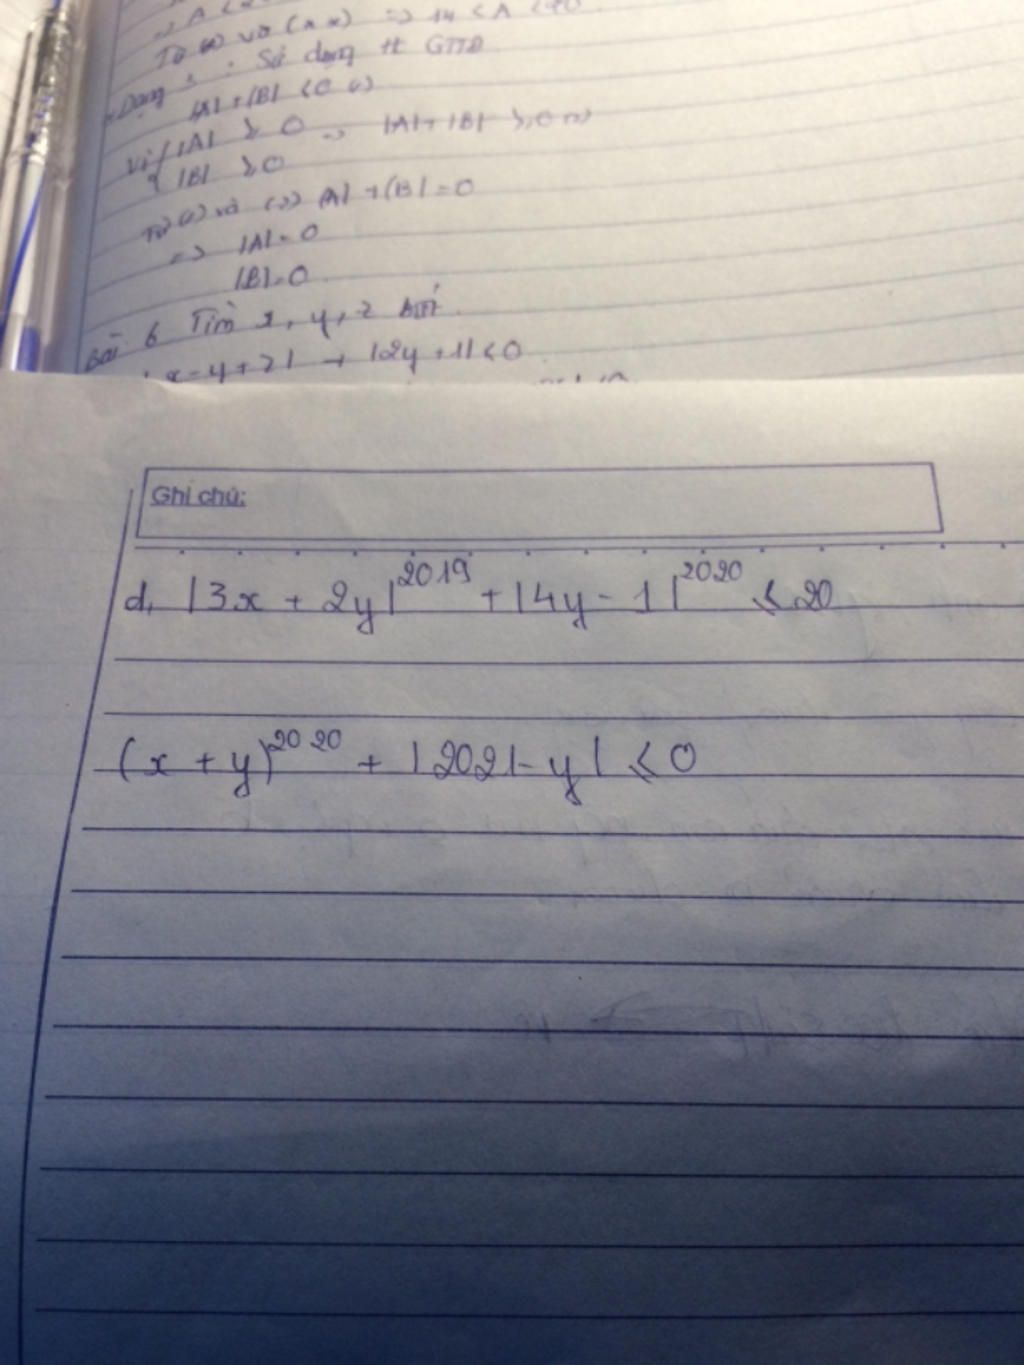 => 14 < A <
Từ (*) và (**)
Dạng : Sử dụng tt GTTĐ
|A| + |B| ≤ 0 (1)
Vì { |A| ≥ 0 => |A| + |B| ≥ 0 (2)
|B| ≥ 0
Từ (1) và (2) |A| + |B| = 0
=> |A| = 0
|B| = 0
Bài 6 Tìm x, y, z biết
x - y + 2| + |2y + 1| ≤ 0
Ghi chú:
d, |3x + 2y|^2019 + |4y - 1|^2020 ≤ 20
(x + y)^2020 + |2021 - y| ≤ 0